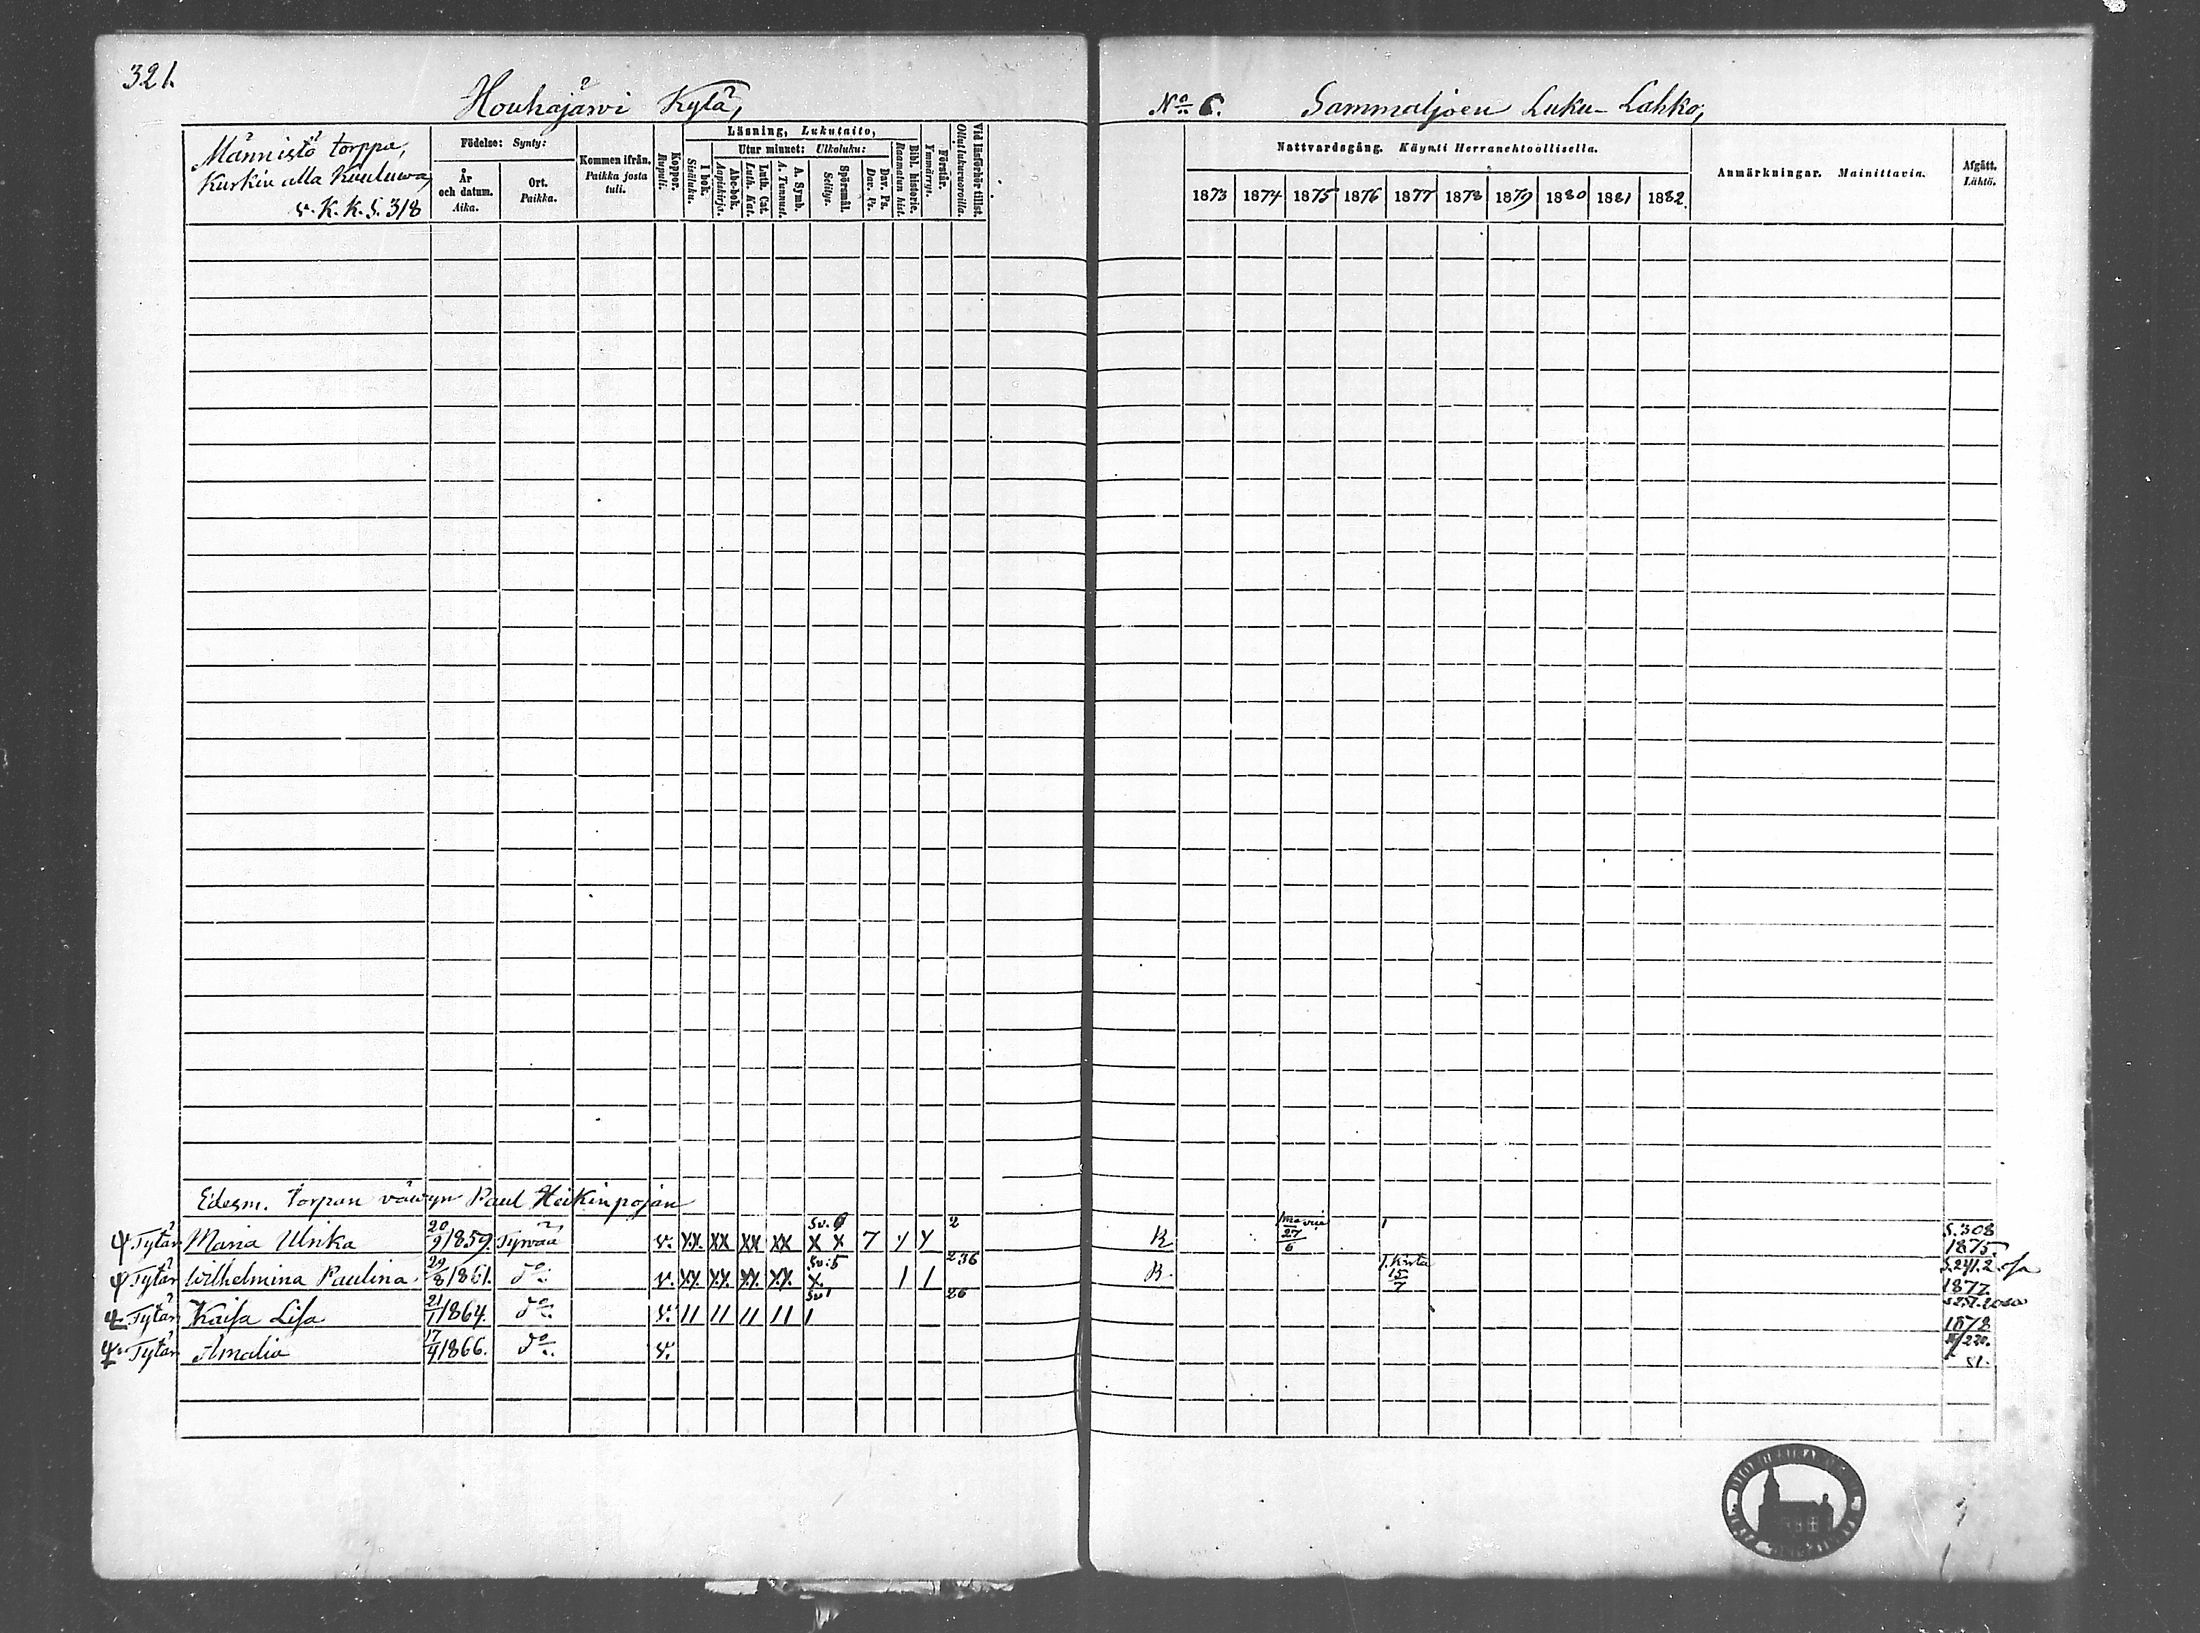 321.
Houhajärvi Kylä,
No 6.
Sammaljoen Luku-Lahko,
Männistö torppa,
Kurkin alla Kuuluwa,
v. K. K. S. 318
Födelse: Synty:
År och datum. Aika.
Ort. Paikka.
Kommen ifrån. Paikka josta tuli.
Koppor. Rupuli.
Läsning, Lukutaito,
I bok. Sisäluku.
Utur minnet: Ulkoluku:
Abc-bok. Aapiskirja.
Luth. Cat. Luth. Kat.
A. Symb. A. Tunnust.
Spörsmål. Selitys.
Dav. Ps. Dav. Ps.
Bibl. historie. Raamatun hist.
Förstår. Ymmärrys.
Vid läsförhör tillst. Ollut lukuvuoroilla.
Nattvardsgång. Käynti Herranehtoollisella.
1873 1874 1875 1876 1877 1878 1879 1880 1881 1882.
Anmärkningar. Mainittavia.
Afgått. Lähtö.
Edesm. torpan väwyn Paul Heikinpojan
Tytär Maria Ulrika 20/9 1859. Tyrvää v. XX XX XX XX Sv. X X 7 2 R 27/6 1 S. 308 1875.
Tytär Wilhelmina Paulina. 29/8 1861. do v. XX XX XX XX Sv. 5 X 1 1 236 R. 15/7 S. 241. 2 1877.
Tytär Kaisa Lisa 21/1 1864. do v. 11 11 11 11 Sv. 1 1 26 1878
Tytär Amalia 17/4 1866. do v. 81.